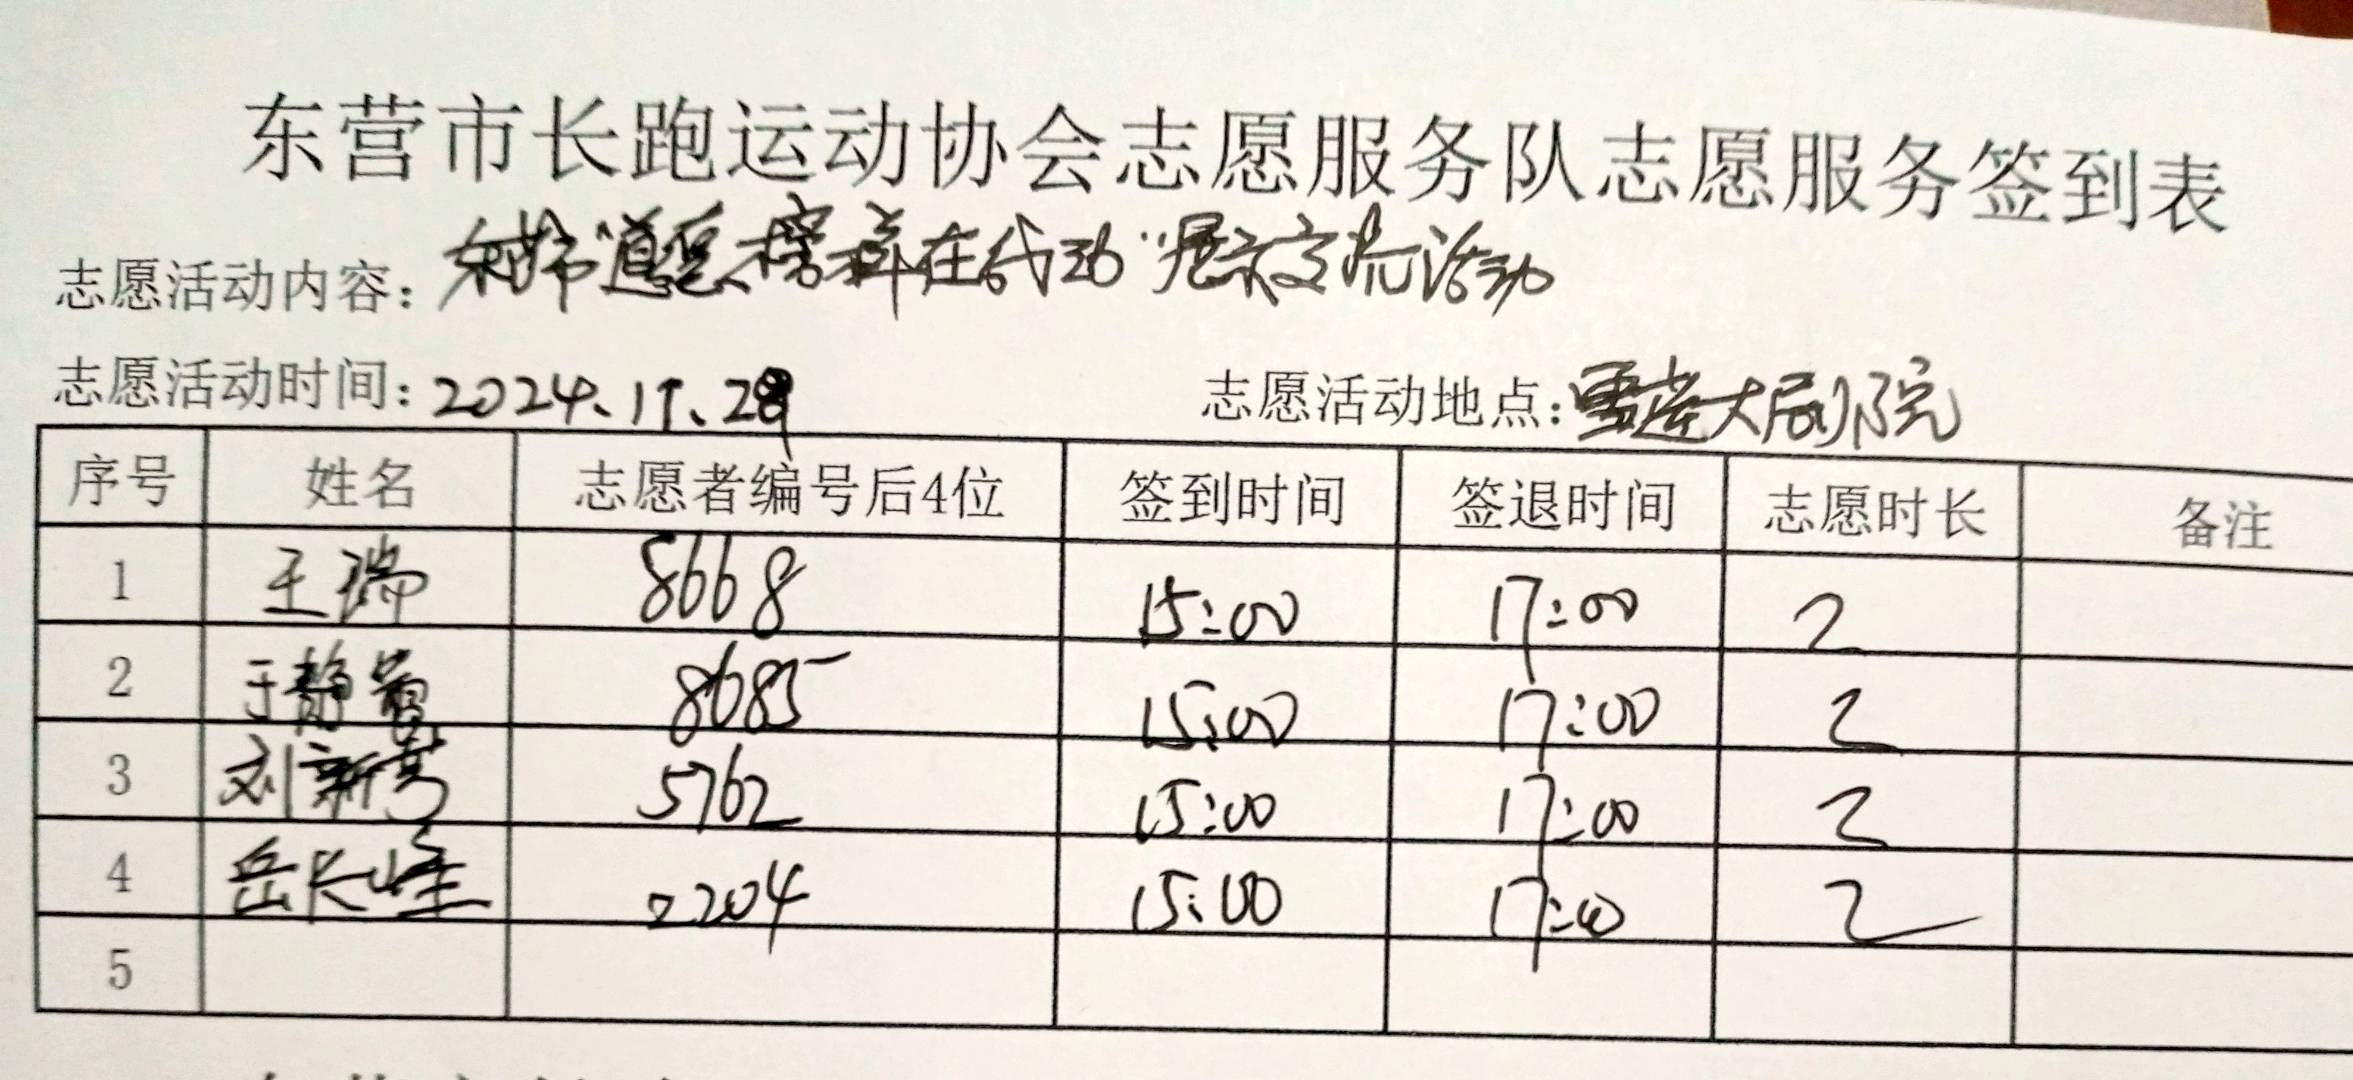 东营市长跑运动协会志愿服务队志愿服务签到表
志愿活动内容: 道德榜样在行动"展示交流活动
志愿活动时间: 2024.11.28
志愿活动地点: 雪莲大剧院
序号 姓名 志愿者编号后4位 签到时间 签退时间 志愿时长 备注
1 王瑞 8668 15:00 17:00 2
2 于静 8685 15:00 17:00 2
3 刘新 5762 15:00 17:00 2
4 岳长峰 2204 15:00 17:00 2
5